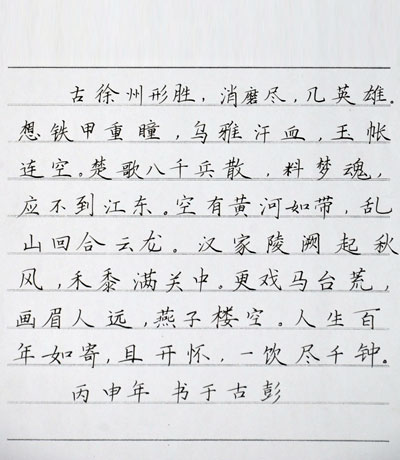 古徐州形胜，消磨尽，几英雄。
想铁甲重瞳，乌雅汗血，玉帐
连空。楚歌八千兵散，料梦魂，
应不到江东。空有黄河如带，乱
山回合云龙。汉家陵阙起秋
风，禾黍满关中。更戏马台荒，
画眉人远，燕子楼空。人生百
年如寄，且开怀，一饮尽千钟。
丙申年 书于古彭